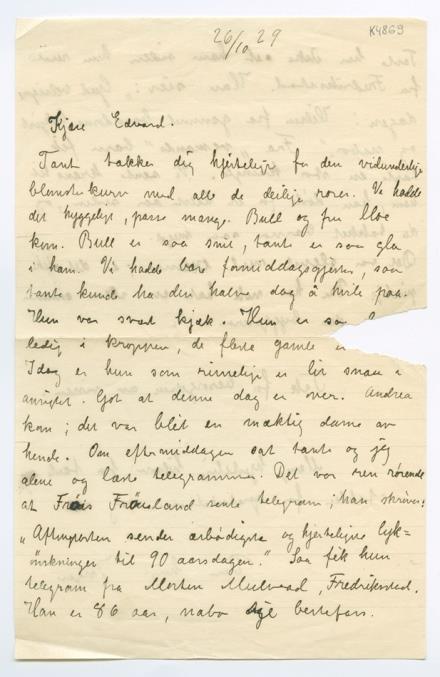 26/10 29
K4869
Kjære Edvard.
Tant takker dig hjerteligst for den vidunderlige
blomsterkurv med alle de deilige roser. Vi hadde
det hyggeligt, passe mange. Bull og fru Uve
kom. Bull er saa snil, tante er saa gla
i ham. Vi hadde bare formiddagsgjester, saa
tante kunde ha den halve dag å hvile paa.
Hun var svært kjæk. Hun er saa
ledig i kroppen, de fleste gamle er
Idag er hun som rimelig er lit snau i
ansigtet. Got at denne dag er over. Andrea
kom; det var blet en mæktig dame av
hende. Om eftermiddagen sat tante og jeg
alene og læste telegrammer. Det var ren rørende
at Frøis Frøisland sente telegram; han skriver:
"Aftenposten sender ærbødigste og hjerteligste lyk=
ønskninger til 90 aarsdagen." Saa fik hun
telegram fra Morten Fredrikstad.
Han er 86 aar, nabo bestefars.